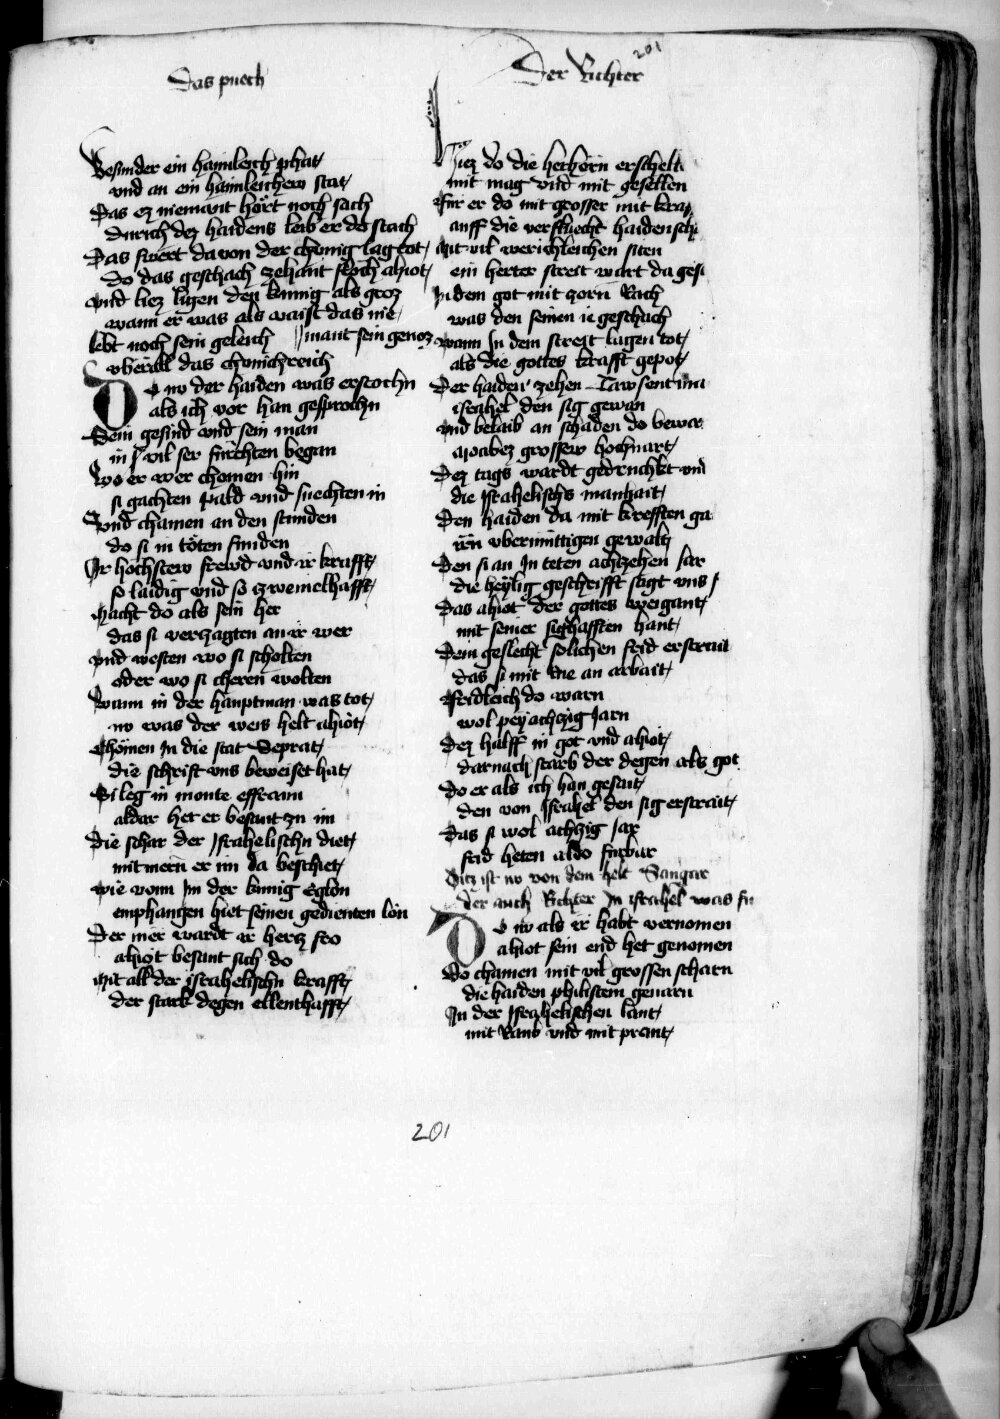 201
Das puech
Der Richter
Besunder ein haimleich phat
vnd an ein haimleichew stat
Das ez niemant hort noch sach
durich dez haidens leib er do stach
Das swert da von der chunig lag tot
do das geschach zehant floch ahiot
vnd liez ligen den kunig als groz
wann er was als waist das nie
lebt noch sein geleich // mant sein genoz
vberall das chunichreich
DO nw der haiden was erstochn
als ich vor han gesprochn
Sein gesind vnd sein man
in vil ser furchten began
Wo er wer chomen hin
si gachten pald vnd suechten in
Vnd chamen an den stunden
do si in töten funden
Ir hochstew frewd vnd ir krafft
so laidig vnd so zweiuelhafft
Macht do als sein her
das si verzagten an ir wer
vnd westen wo si scholten
oder wo si cheren wolten
Wann in der hauptman was tot
nw was der weis helt ahiot
Chömen In die stat Seprat
die schrift vns beweiset hat
Si leg in monte effraim
aldar het er besant zu im
die schar der Israhelischn diet
mit mern er im da beschiet
wie vonn Im der kunig Eglon
emphangen hiet seinen gedienten lon
Der mer wardt ir hertz fro
ahiot besant sich do
Mit all der israhelischn krafft
der starck degen ellenthafft
Hiez do die herhorn erschell
mit mag vnd mit gesellen
Fur er do mit grosser mit
auff die verfluecht haidensch
Mit vil werichleichen siten
ein herter streit wart da
In dem got mit zorn Rach
was den seinen ie geschach
wann In dem streit lagen tot
als die gottes krafft gepot
Der haiden zehen Tawsent
israhel den sig gewan
vnd belaib an schaden do
moabez grossew hochuart
Dez tags wardt gedruchkt vnd
die Israhelischs manhait
Den haiden da mit krefften
irn vbermuttigen gewalt
Den si an In teten achtzehen Jar
die heylig geschrifft sagt vns
Das ahiot der gottes weigant
mit seiner sighafften hant
Dem geslecht solichen frid
das si mit rue an arbait
Fridleich do warn
wol pey achzig Jarn
Dez halff in got vnd ahiot
darnach starb der degen als got
do er als ich han gesait
den von Israhel den sig erstrait
Das si wol achzig Jar
frid heten aldo furbar
Ditz ist nw von dem helt Sangar
der auch Richter In israhel was
DO nw als ir habt vernomen
ahiot sein end het genomen
Do chamen mit vil grossen scharn
die haiden philistein genarn
In der Israhelischen lant
mit Raub vnd mit prant
201